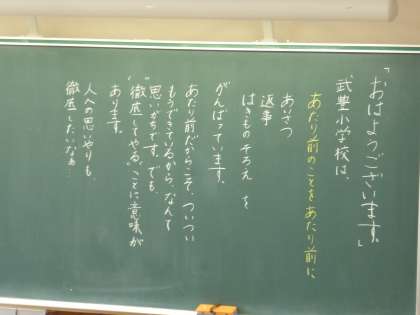 「おはようございます。」
武豊小学校は、
あたり前のことをあたり前に
あいさつ
返事
はきものそろえ を
がんばっています。
あたり前だからこそ、ついつい
もうできているから、なんて
思いがちです。でも、
"徹底してやる"ことに意味が
あります。
人への思いやりも、
徹底したいなぁ…